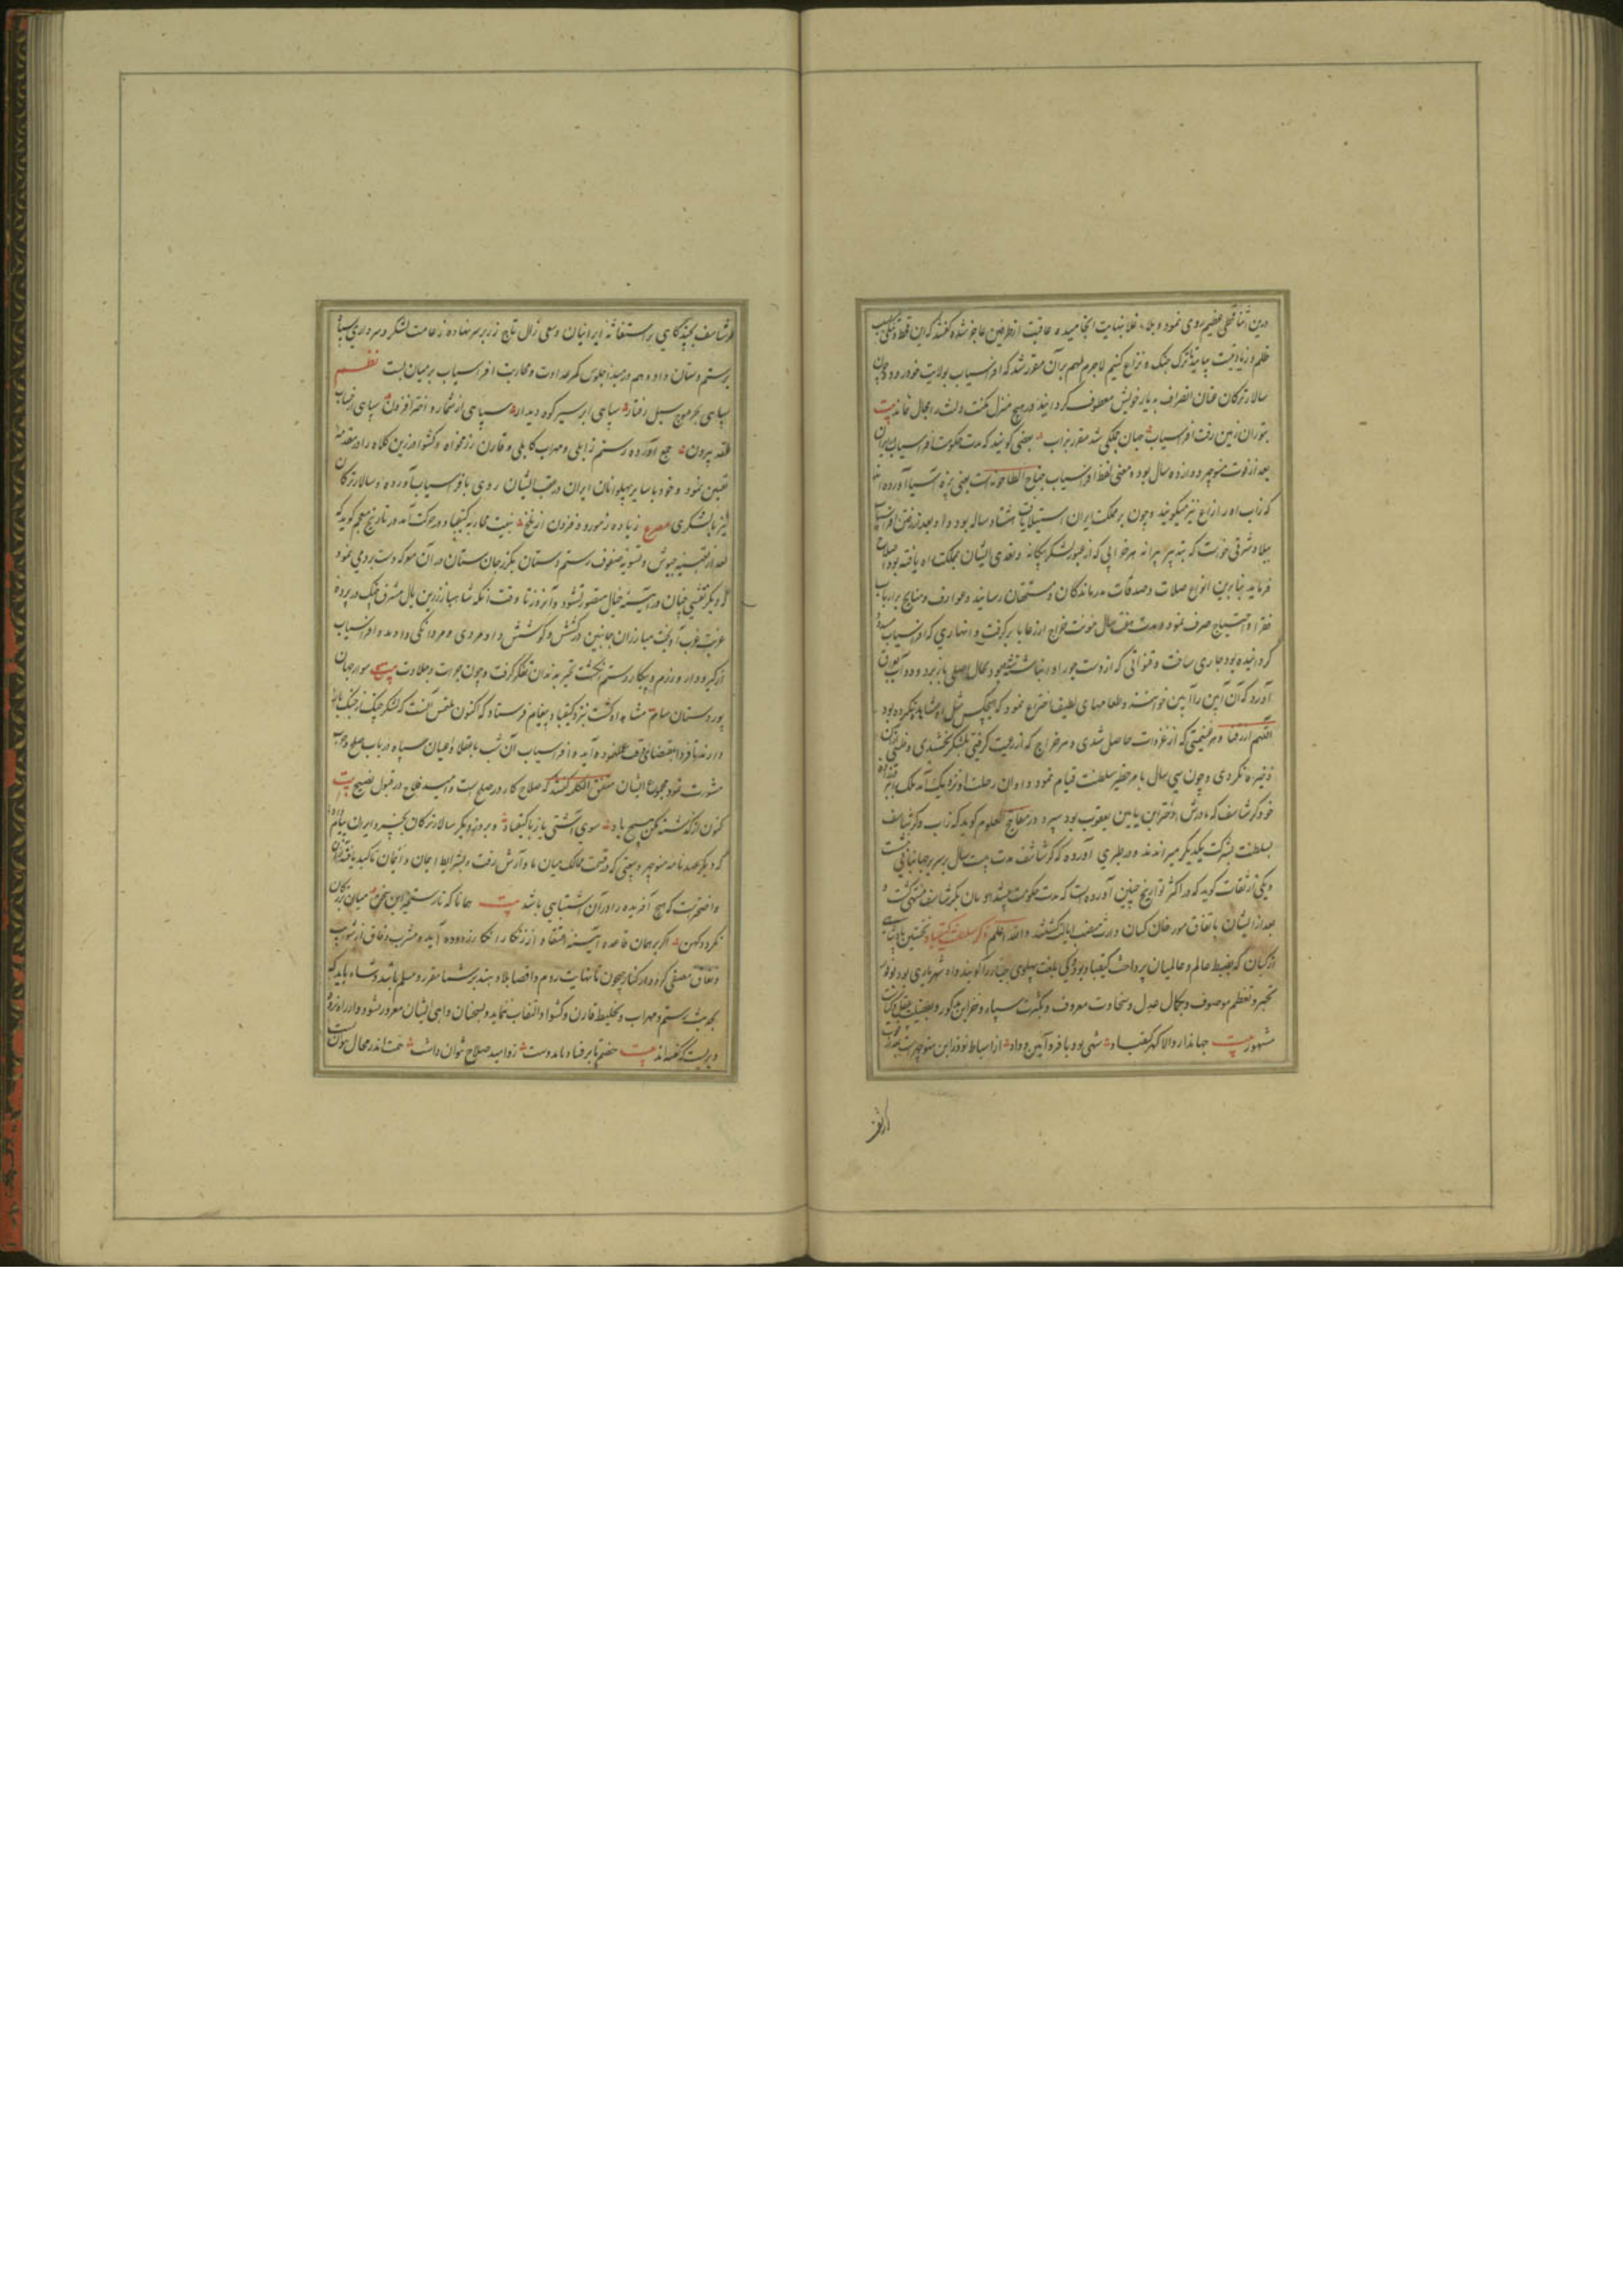 درین اثنا قحطی عظیم روی نمود و بلاء غلا بنهایت انجامیده عاقبت از طرفین عاجز شده گفتند که این قحط و تنگی بسبب
ظلم و زیادتیست بیایید تا ترک جنگ و نزاع کنیم لاجرم مهم بر آن مقرر شد که افراسیاب بولایت خود رود و چون
سالار ترکان عنان انصراف بدیار خویش معطوف گردانید و در هیچ منزل مکث و لشکر را مجال نماند بیت
بتوران زمین رفت افراسیاب جهان جملگی شد مقرر بزاب بعضی گویند که مدت حکومت افراسیاب در ایران
بعد از فوت منوچهر دوازده سال بود و معنی لفظ افراسیاب جناح الطاحونه است یعنی پره آسیا آورده اند
که زاب را زاغ نیز میگویند و چون بر مملکت ایران استیلا یافت هشتاد ساله بود و او بعد از رفتن افراسیاب
ببلاد شرقی خواست که بتدبیر پیرانه هر خرابی که از عبور لشکر بیگانه و تعدی ایشان بمملکت راه یافته بود اصلاح
فرماید بنابرین انواع صلات و صدقات بدرماندگان و مستحقان رسانید و عوارف و منایح بر ارباب
فقر و احتیاج صرف نمود و مدت هفت سال مؤنت خراج از رعایا برگرفت و انهاری که افراسیاب مسدود
گردانیده بود جاری ساخت و قنواتی که از دست جور او انباشته شده بود بحال اصلی باز برد و دو آب
آورد که آن را زابین خوانند و طعامهای لطیف اختراع نمود که هیچکس مثل او مشاهده نکرده بود
اللهم ارزقنا و هر غنیمتی که از غزوات حاصل شدی و هر خراج که از رعیت گرفتی بلشکر بخشیدی و
ذخیره نکردی و چون سی سال بامر خطیر سلطنت قیام نمود و اوان رحلت او نزدیک آمد ملک را ببرادرزاده
خود گرشاسف که مادرش دختر ابن یامین یعقوب بود سپرد و در مفاتیح العلوم گوید که زاب و گرشاسف
بسلطنت بشرکت یکدیگر میراندند و در طبری آورده که گرشاسف مدت بیست سال بر سریر جهانبانی نشست
و یکی از ثقات گوید که در اکثر تواریخ چنین آورده است که مدت حکومت پیشدادیان بگرشاسف منتهی گشت و
بعد از ایشان باتفاق مورخان کیان وارث منصب ایالت گشتند والله اعلم ذکر سلطنت کیقباد نخستین پادشاهی
از کیان که بضبط عالم و عالمیان پرداخت کیقباد بود و کی بلغت پهلوی جبار را گویند و او شهریاری بود بوفور
تجبر و تعظم موصوف و بکمال عدل و سخاوت معروف و بکثرت سپاه و خزاین مذکور و
مشهور بیت جهاندار والا گهر کیقباد شهی بود با فر و آیین و داد از اسباط نوذر ابن منوچهر است بعد از
گرشاسف
گرشاسف بچندگاهی براستغاثه ایرانیان و سعی زال تاج زر بر سر نهاده زعامت لشکر و سرداری سپاه
برستم دستان داد و هم در مبداء جلوس کمر عداوت و محاربت افراسیاب بر میان بست نظم
سپاهی بحر موج سیل رفتار سپاهی ابر سیر کوه دیدار سپاهی از شمار و اختر افزون سپاهی از حساب
عقد بیرون جمع آورده رستم زابلی و مهراب کابلی و قارن رزمخواه و کشواد زرین کلاه را در مقدمه
تعیین نمود و خود با سایر پهلوانان ایران در عقب ایشان روی بافراسیاب آورده و سالار ترکان
نیز بالشکری مصرع زیاده ز مور و فزون از ملخ بنیت محاربه کیقباد در حرکت آمد در تاریخ معجم گوید که
بعد از تعبیه جیوش و تسویه صفوف رستم دستان بگرز جان ستان در آن معرکه دست بردی نمود
که دیگر نقشی چنان در آیینه خیال متصور نشود و آنروز تا وقت آنکه شاهباز زرین بال مشرق چنگ در پرده
غراب غرب آویخت مبارزان جانبین در کشش و کوشش داد مردی و مردانگی دادند و افراسیاب
از گیر و دار و رزم و پیکار رستم انگشت تحیر بدندان تفکر گرفت و چون جرأت و جلادت بیت سوار جهان
پور دستان سام مشاهده گشت نزد کیقباد پیغام فرستاد که اکنون ملتمس آنست که لشکر چنگ از جنگ باز
دارند تا فردا بمقتضای وقت عمل نموده آید و افراسیاب آن شب با عقلا و اعیان سپاه در باب صلح و حرب
مشورت نمود مجموع ایشان متفق الکلمه گفتند که صلاح کار در صلح است و امید فلاح در قبول نصیحت بیت
کنون از گذشته مکن هیچ یاد سوی آشتی یاز با کیقباد و روز دیگر سالار ترکان بخسرو ایران پیام داد
که دیگر عهدنامه منوچهر و یعنی که در قسمت ممالک میان ما و آرش رفت و بشرایط احکام و ایمان تأکید یافته چنان
واضحست که هیچ آفریده را در آن اشتباهی باشد بیت همانا که تا رستخیز این سخن میان بزرگان
نگردد کهن اگر بر همان قاعده آیینه اعتقاد از زنگار انکار زدوده آید و مشرب وفاق از شوایب
و نفاق مصفی گردد از کنار جیحون تا نهایت روم و اقصا بلاد هند بر شما مقرر و مسلم باشد و شاه باید که
بحدیث رستم و مهراب و تخلیط قارن و کشواد التفات ننماید و بسخنان واهی ایشان مغرور نشود و از راه
دیریست که گفته اند بیت خصم تا بر فساد باید دست زو امید صلاح نتوان داشت